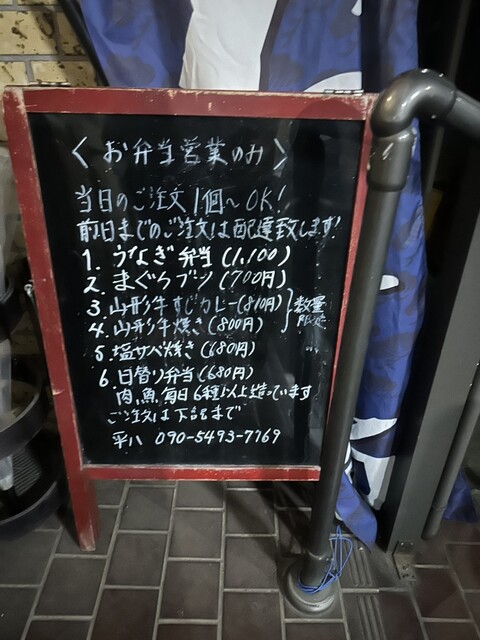 〈お弁当営業のみ〉
当日のご注文1個〜OK!
前日までのご注文は配達致します!
1. うなぎ弁当(1,100)
2. まぐろブツ(700円)
3. 山形牛すじカレー(810円)
4. 山形牛焼き(800円)
数量
限定
5 塩サバ焼き(680円)
6. 日替り弁当(680円)
肉、魚、毎日6種以上造っています
ご注文は下記まで
平八 090-5493-7769